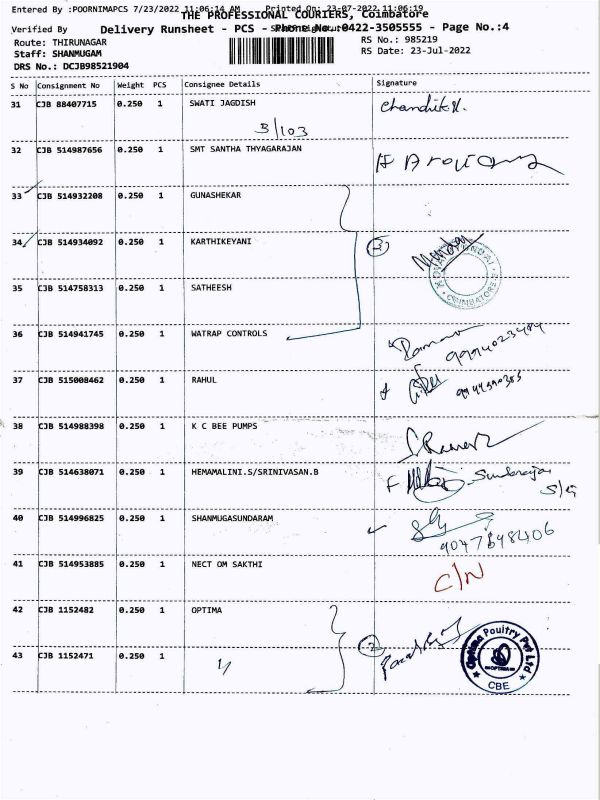 Entered By :POORNIMAPCS 7/23/2022 11:06:14 AM Printed On: 23-07-2022 11:06:19
THE PROFESSIONAL COURIERS, Coimbatore
Verified By
Delivery Runsheet - PCS - Phone No.:0422-3505555 - Page No.:4
Route: THIRUNAGAR RS No.: 985219
Staff: SHANMUGAM RS Date: 23-Jul-2022
DRS No.: DCJB98521904
S No Consignment No Weight PCS Consignee Details Signature
31 CJB 88407715 0.250 1 SWATI JAGDISH
B/103
32 CJB 514987656 0.250 1 SMT SANTHA THYAGARAJAN
33 CJB 514932208 0.250 1 GUNASHEKAR
34 CJB 514934092 0.250 1 KARTHIKEYANI
3
COIMBATORE
35 CJB 514758313 0.250 1 SATHEESH
36 CJB 514941745 0.250 1 WATRAP CONTROLS
37 CJB 515008462 0.250 1 RAHUL
38 CJB 514988398 0.250 1 K C BEE PUMPS
39 CJB 514638071 0.250 1 HEMAMALINI.S/SRINIVASAN.B
40 CJB 514996825 0.250 1 SHANMUGASUNDARAM
41 CJB 514953885 0.250 1 NECT OM SAKTHI C/N
42 CJB 1152482 0.250 1 OPTIMA
2
Optima Poultry Pvt Ltd
OPTIMA
CBE
43 CJB 1152471 0.250 1 "